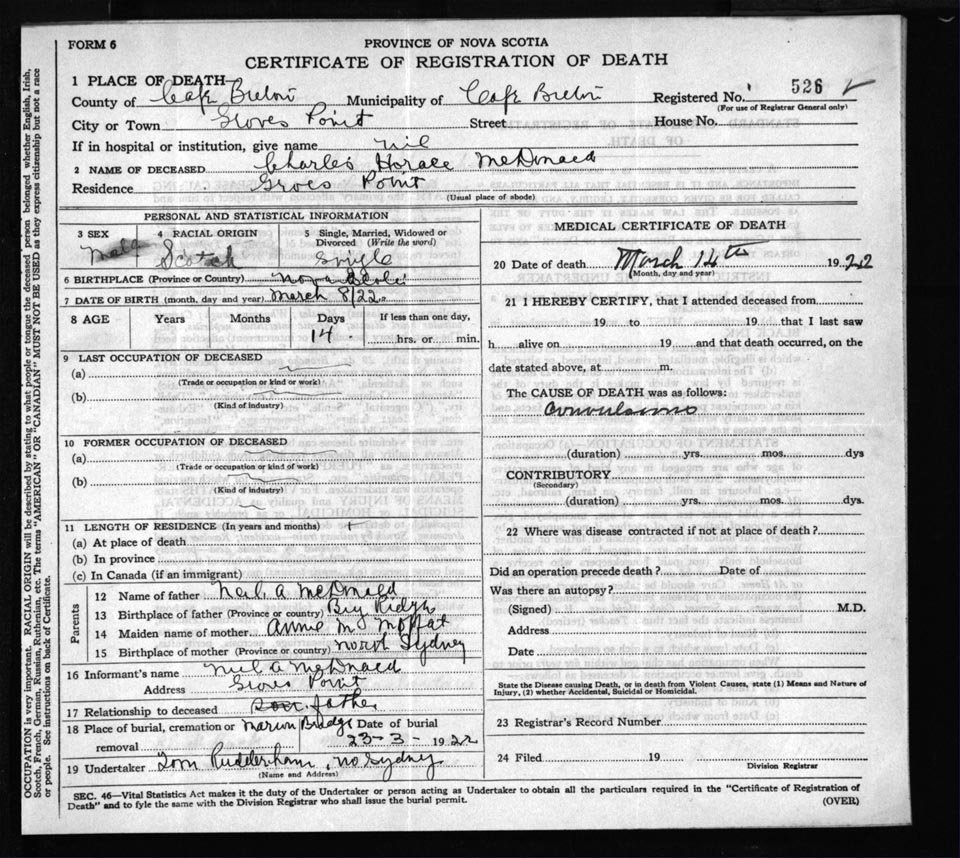 FORM 6
PROVINCE OF NOVA SCOTIA
CERTIFICATE OF REGISTRATION OF DEATH
1 PLACE OF DEATH
County of Cape Breton Municipality of Cape Breton Registered No. 526
(For use of Registrar General only)
City or Town Groves Point Street House No.
If in hospital or institution, give name nil
2 NAME OF DECEASED Charles Horace McDonald
Residence Groves Point
(Usual place of abode)
PERSONAL AND STATISTICAL INFORMATION
3 SEX 4 RACIAL ORIGIN 5 Single, Married, Widowed or
Divorced (Write the word)
Male Scotch Single
6 BIRTHPLACE (Province or Country) Nova Scotia
7 DATE OF BIRTH (month, day and year) March 8/22
8 AGE Years Months Days If less than one day,
14 hrs. or min.
9 LAST OCCUPATION OF DECEASED
(a)
(Trade or occupation or kind or work)
(b)
(Kind of industry)
10 FORMER OCCUPATION OF DECEASED
(a)
(Trade or occupation or kind of work)
(b)
(Kind of industry)
11 LENGTH OF RESIDENCE (In years and months)
(a) At place of death
(b) In province
(c) In Canada (if an immigrant)
Parents
12 Name of father Neil A McDonald
13 Birthplace of father (Province or country) Big Ridge
14 Maiden name of mother Annie M Moffat
15 Birthplace of mother (Province or country) North Sydney
16 Informant's name Neil A McDonald
Address Groves Point
17 Relationship to deceased father
18 Place of burial, cremation or Marion Bridge Date of burial
removal 23-3- 1922
19 Undertaker Tom Rudderham, No Sydney
(Name and Address)
MEDICAL CERTIFICATE OF DEATH
20 Date of death March 14th 1922
(Month, day and year)
21 I HEREBY CERTIFY, that I attended deceased from
19 to 19 that I last saw
h alive on 19 and that death occurred, on the
date stated above, at m.
The CAUSE OF DEATH was as follows:
Convulsions
(duration) yrs. mos. dys
CONTRIBUTORY
(Secondary)
(duration) yrs. mos. dys.
22 Where was disease contracted if not at place of death?
Did an operation precede death? Date of
Was there an autopsy?
(Signed) M.D.
Address
Date
State the Disease causing Death, or in death from Violent Causes, state (1) Means and Nature of
Injury, (2) whether Accidental, Suicidal or Homicidal.
23 Registrar's Record Number
24 Filed 19
Division Registrar
SEC. 46—Vital Statistics Act makes it the duty of the Undertaker or person acting as Undertaker to obtain all the particulars required in the "Certificate of Registration of
Death" and to fyle the same with the Division Registrar who shall issue the burial permit. (OVER)
OCCUPATION is very important. RACIAL ORIGIN will be described by stating to what people or tongue the deceased person belonged whether English, Irish,
Scotch, French, German, Russian, Ruthenian, etc. The terms "AMERICAN" OR "CANADIAN" MUST NOT BE USED as they express citizenship but not a race
or people. See instructions on back of Certificate.